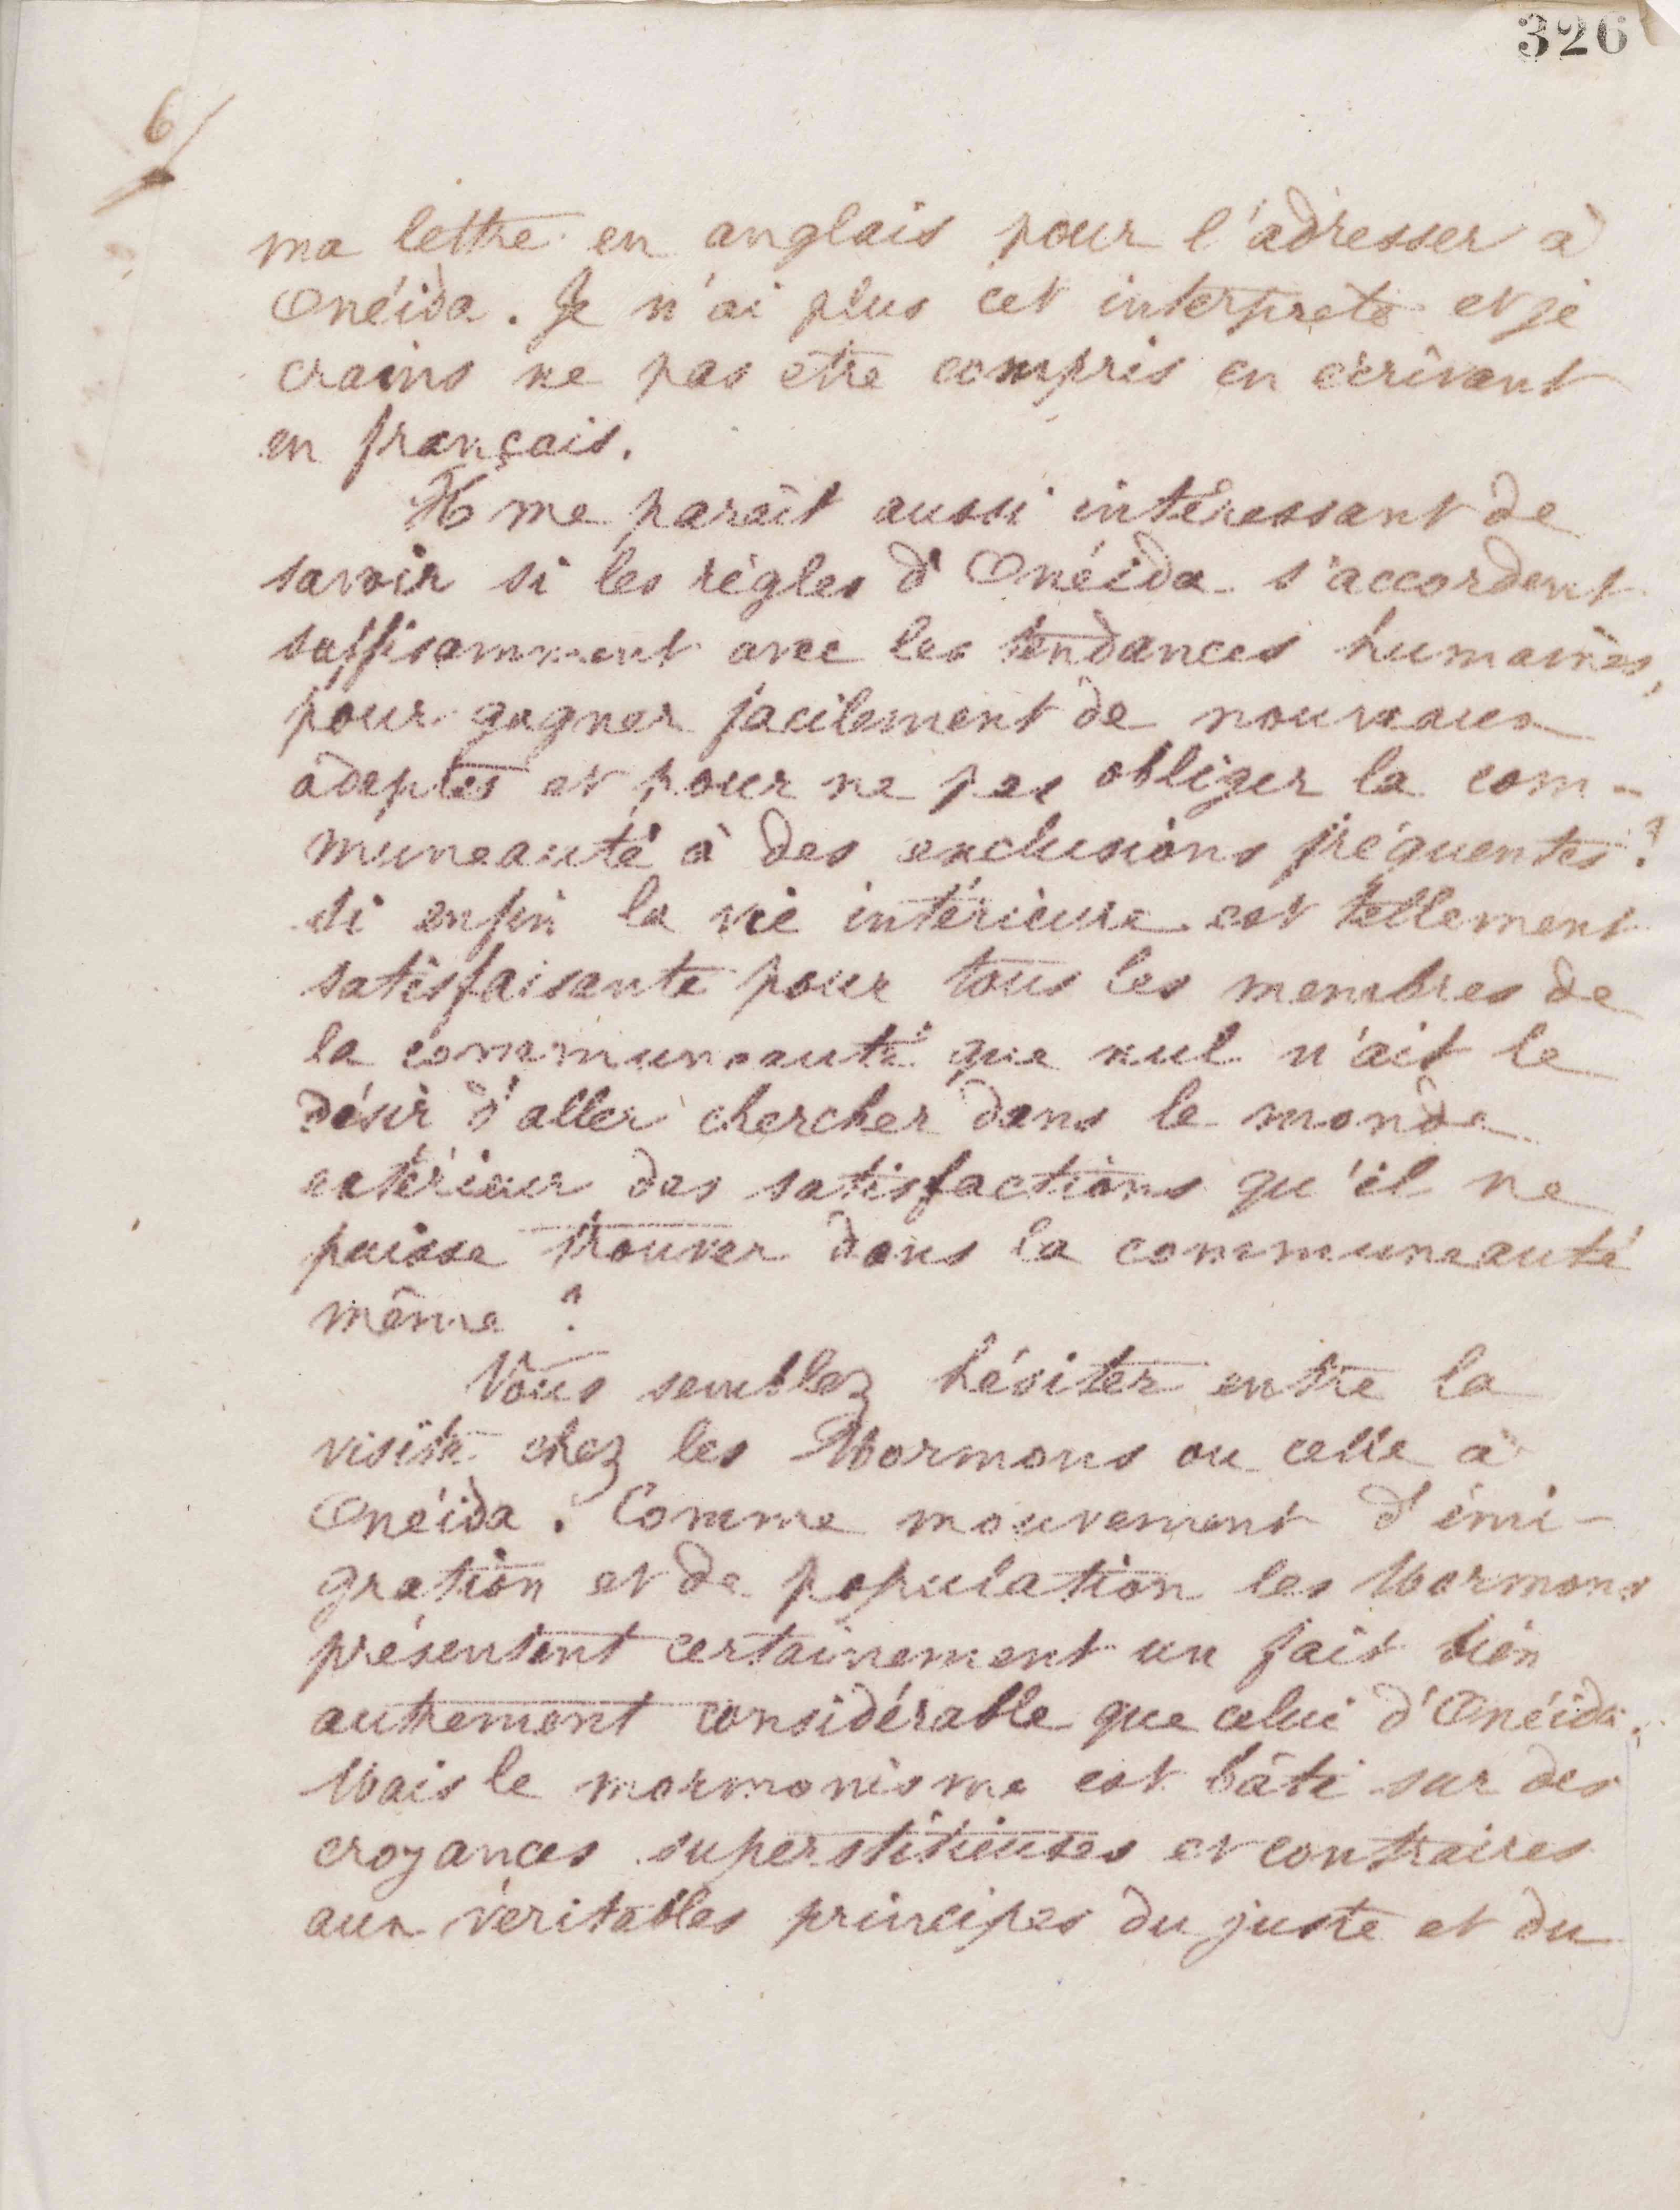 326
6/
ma lettre en anglais pour l'adresser à
Onéida. Je n'ai plus cet interprète et je
crains ne pas être compris en écrivant
en français.
Il me paraît aussi intéressant de
savoir si les règles d'Onéida s'accordent
suffisamment avec les tendances humaines,
pour gagner facilement de nouveaux
adeptes et pour ne pas obliger la com-
muneauté à des exclusions fréquentes ?
si enfin la vie intérieure est tellement
satisfaisante pour tous les membres de
la communeauté que nul n'ait le
désir d'aller chercher dans le monde
extérieur des satisfactions qu'il ne
puisse trouver dans la communeauté
même ?
Vous semblez hésiter entre la
visite chez les Mormons ou celle à
Onéida. Comme mouvement d'émi-
gration et de population les Mormons
présentent certainement un fait bien
autrement considérable que celui d'Onéida.
Mais le mormonisme est bâti sur des
croyances superstitieuses et contraires
aux véritables principes du juste et du